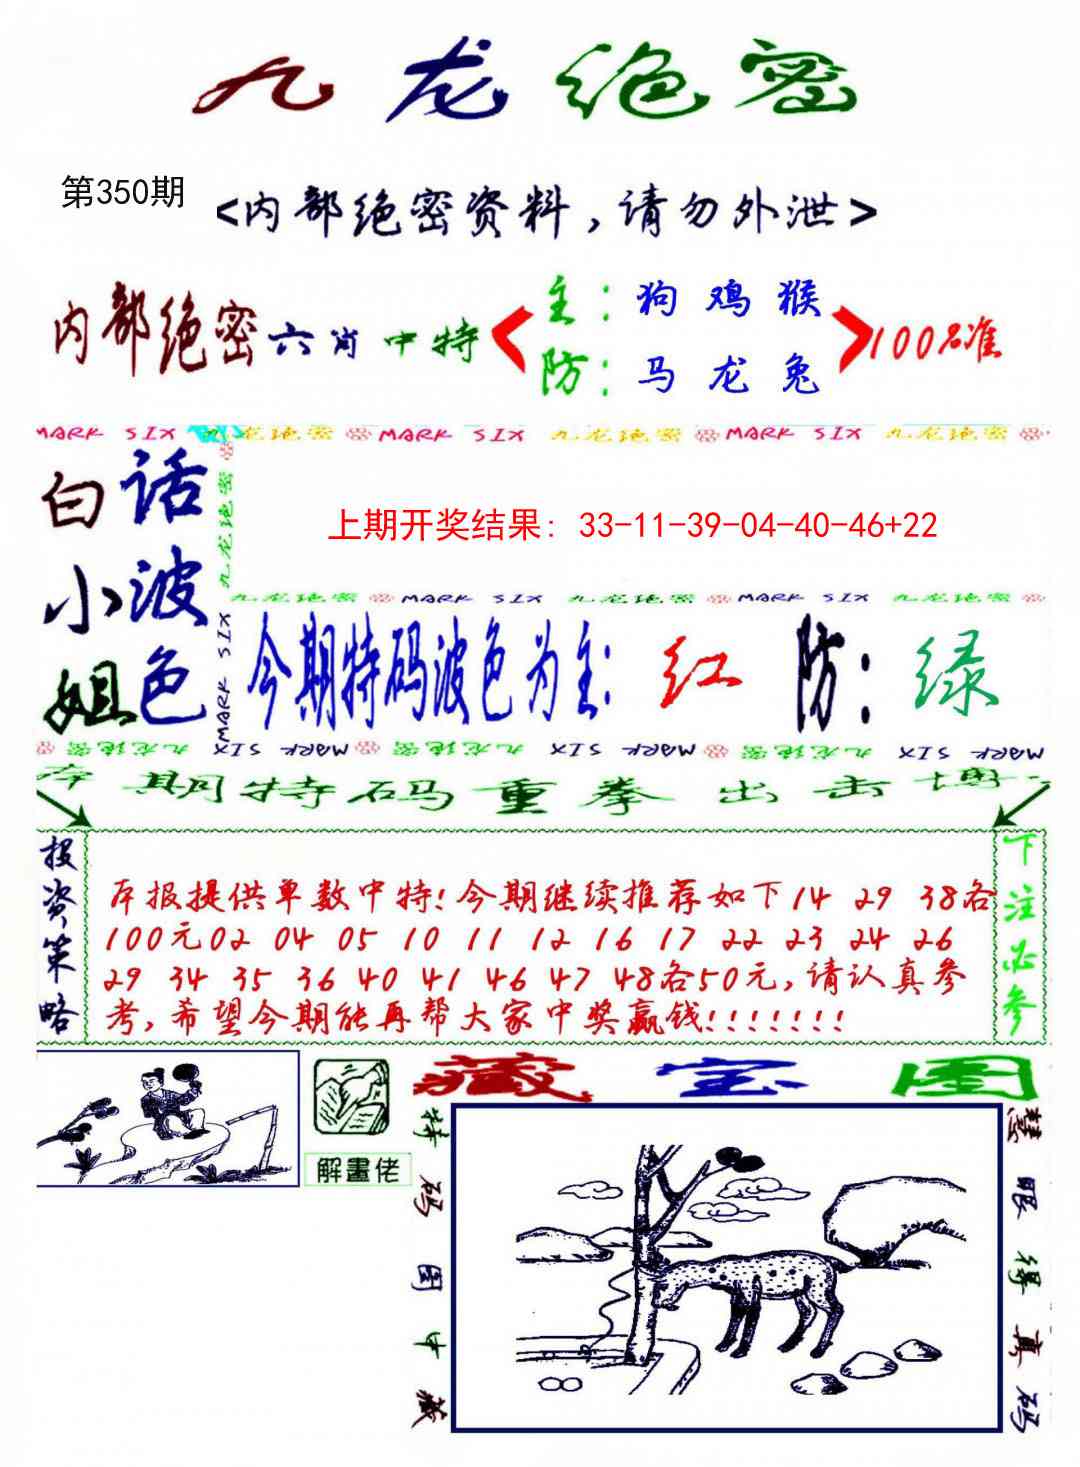 九龙绝密
第350期
<内部绝密资料,请勿外泄>
内部绝密六肖中特
主:狗 鸡 猴
防:马 龙 兔
100%准
MARK SIX 九龙绝密 MARK SIX 九龙绝密 MARK SIX 九龙绝密
白话
小波
姐色
九龙绝密
MARK SIX
上期开奖结果: 33-11-39-04-40-46+22
九龙绝密 MARK SIX 九龙绝密 MARK SIX 九龙绝密
今期特码波色为主:红 防:绿
九龙绝密 MARK SIX 九龙绝密 MARK SIX 九龙绝密 MARK SIX
本期特码重拳出击博
投资策略
本报提供单数中特!今期继续推荐如下14 29 38各
100元02 04 05 10 11 12 16 17 22 23 24 26
29 34 35 36 40 41 46 47 48各50元,请认真参
考,希望今期能再帮大家中奖赢钱!!!!!!!
下注必参
解畫佬
藏宝图
特码图中藏
慧眼得真码